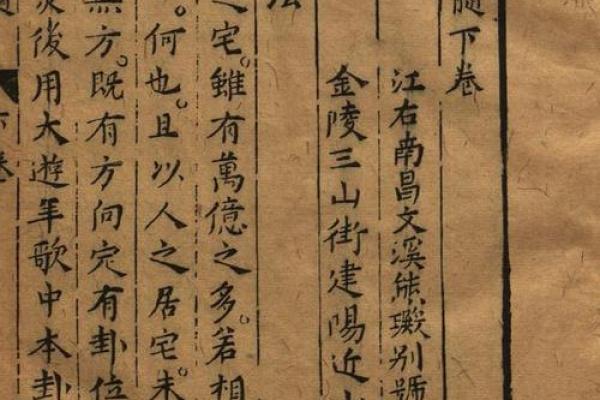 髓下卷
江右南昌文溪熊璬別號
金陵三山街建陽近山
法
之宅。雖有萬億之多。若相
。何也。且以人之居宅。未
無方。既有方向定有卦位
炎後用大遊年歌中本卦
下卷